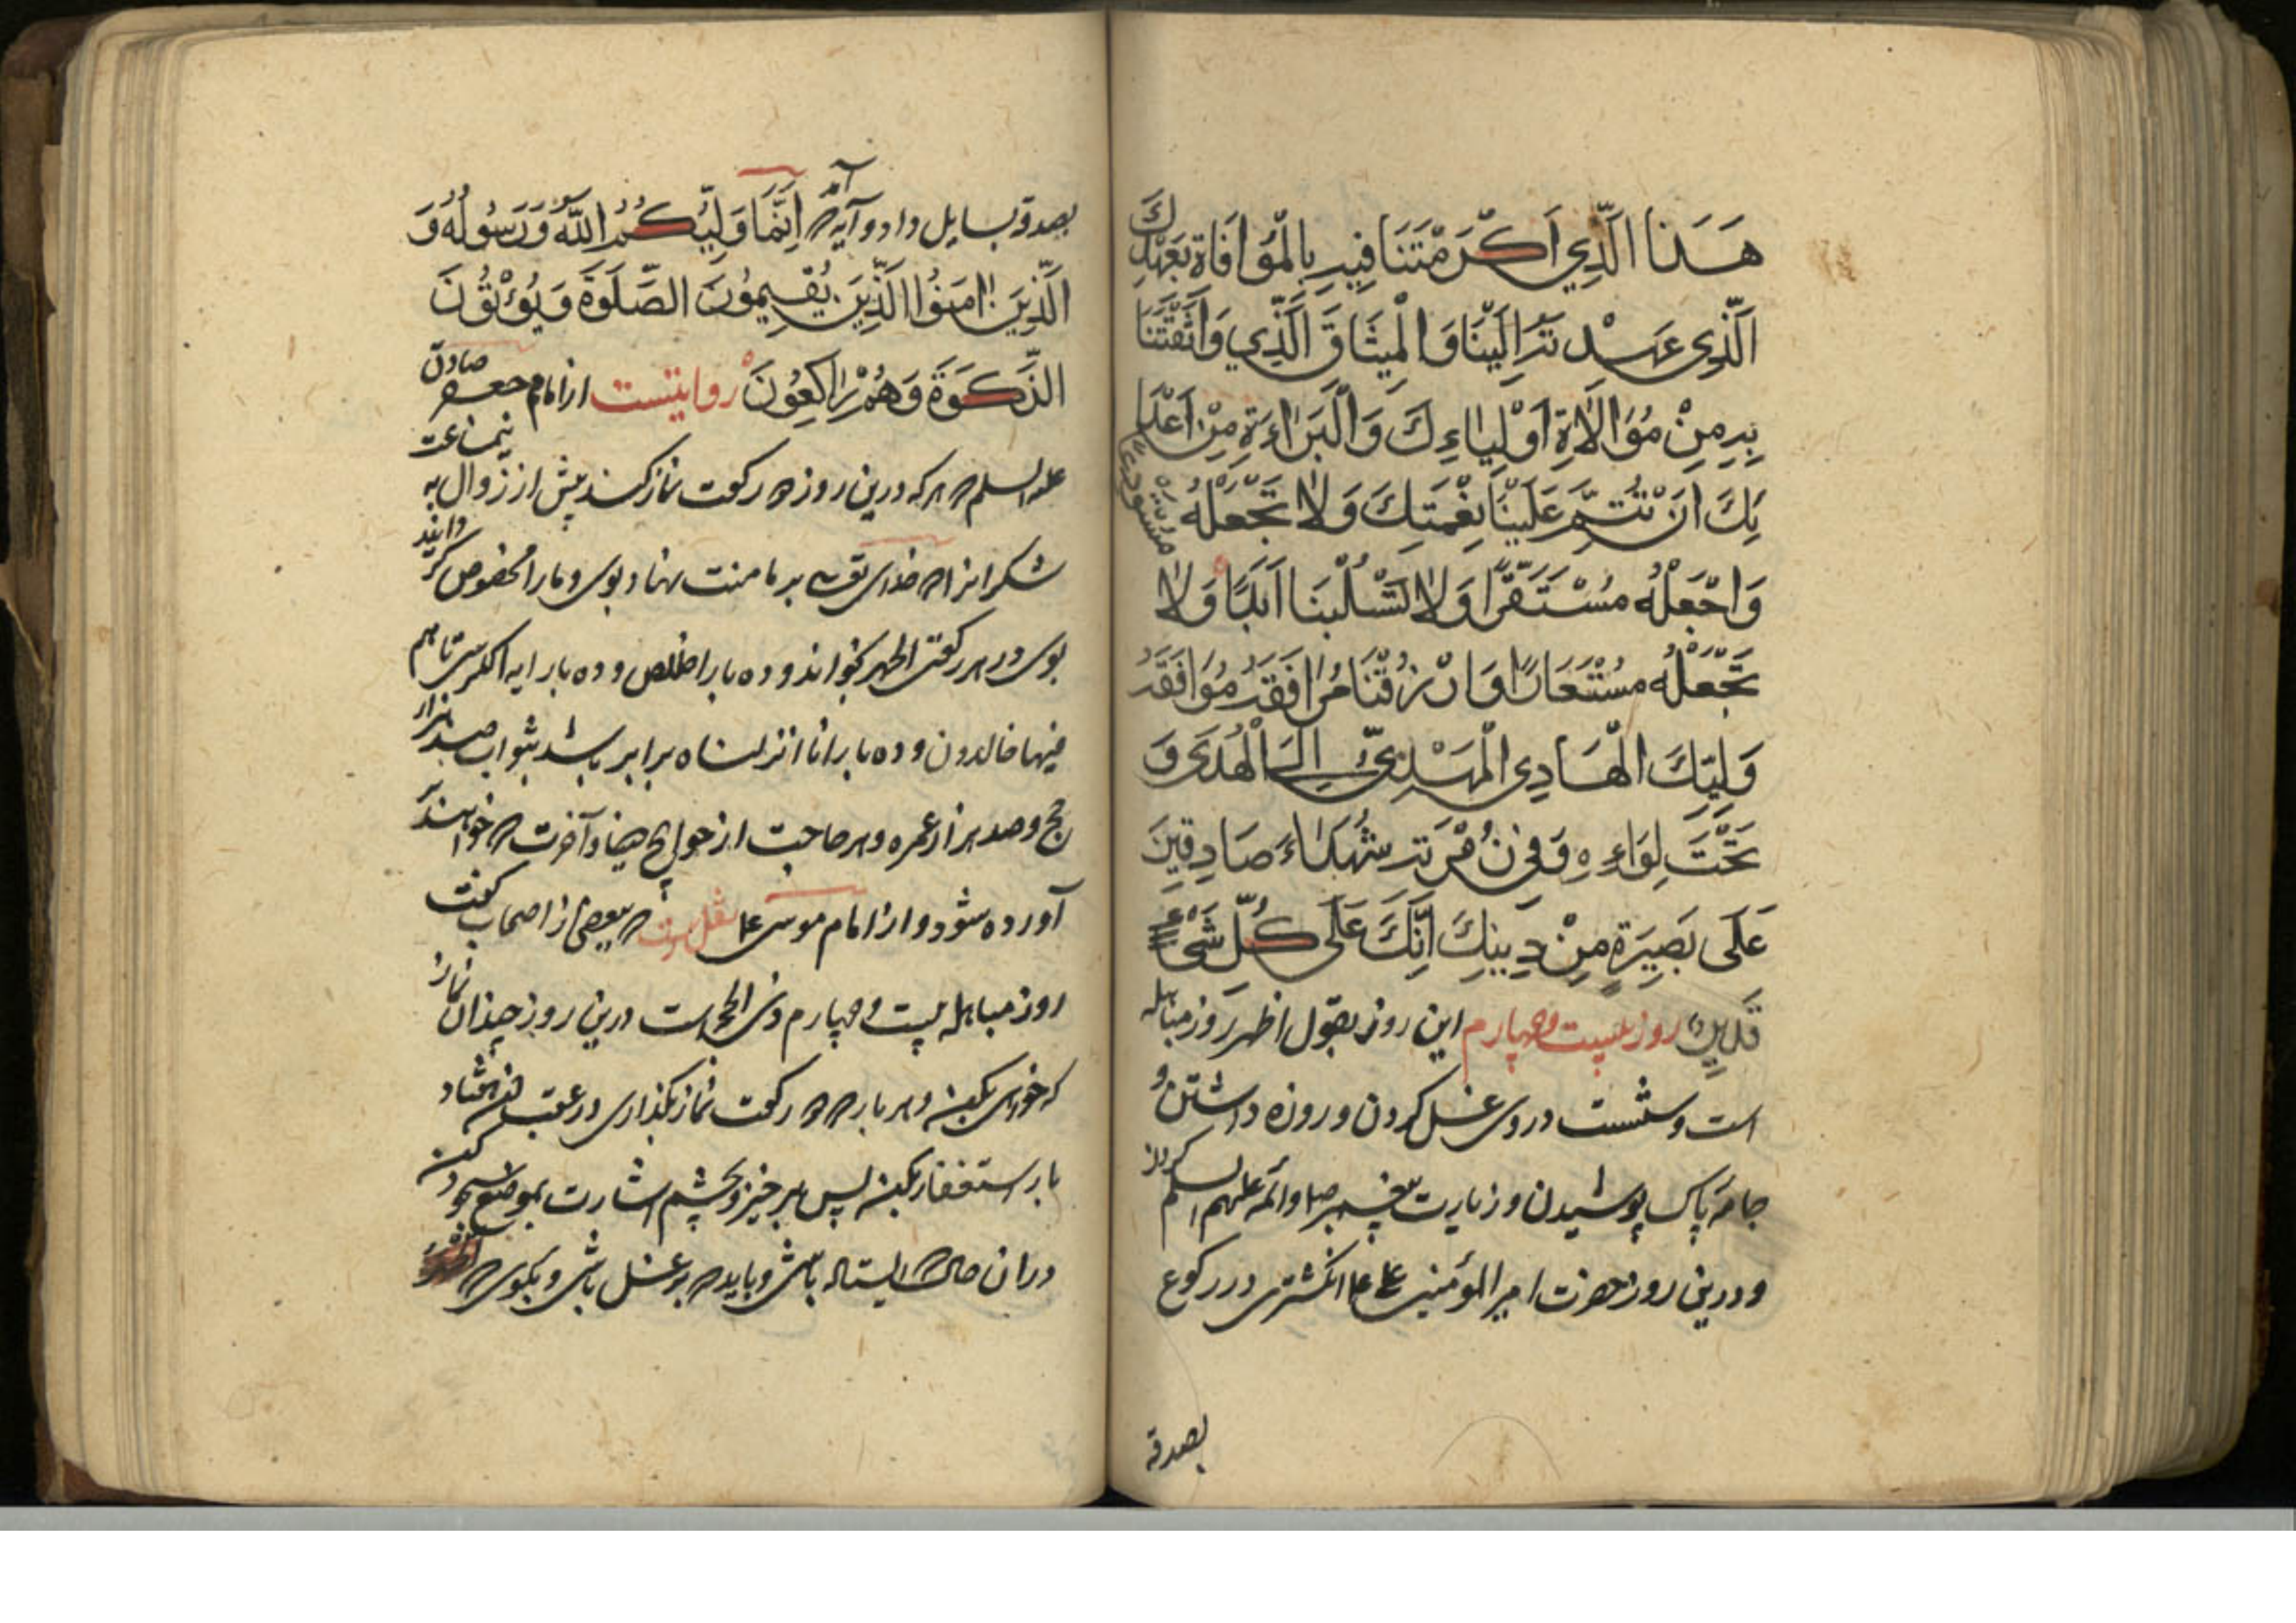 هَذَا الَّذِي اَكْرَمْتَنَا فِيهِ بِالْمُوَافَاةِ بَعَهْدِكَ
الَّذِي عَهِدْتَهُ اِلَيْنَا وَالْمِيثَاقَ الَّذِي وَاثَقْتَنَا
بِهِ مِنْ مُوَالَاةِ اَوْلِيَاءِكَ وَالْبَرَاءَةِ مِنْ اَعْدَا
ئِكَ اَنْ تُتِمَّ عَلَيْنَا نِعْمَتِكَ وَلَا تَجْعَلْهُ مستودعا
وَاجْعَلْهُ مُسْتَقَرًّا وَلَا تَسْلُبْنَا اَبَدًا وَلَا
تَجْعَلْهُ مُسْتَعَارًا وَارْزُقْنَا مُرَافَقَةَ مُوَافَقَةَ
وَلِيِّكَ الْهَادِي الْمَهْدِيِّ اِلَى الْهُدَى وَ
تَحْتَ لِوَاءِهِ وَفِي زُمْرَتِهِ شُهَدَاءَ صَادِقِينَ
عَلَى بَصِيرَةٍ مِنْ دِينِكَ اِنَّكَ عَلَى كُلِّ شَيْءٍ
قَدِيرٌ روز بیست و چهارم این روز بقول اظهر روز مباهله
است و سنتست در وی غسل کردن و روزه داشتن و
جامۀ پاک پوشیدن و زیارت پیغمبر ص و ائمه علیهم السلم کردن
و درین روز حضرت امیر المؤمنین علی ع انگشتری در رکوع
بصدقه
بصدقه بسایل داد و آیۀ اِنَّمَا وَلِيُّكُمُ اللَّهُ وَرَسُولُهُ وَ
الَّذِينَ اٰمَنُوا الَّذِينَ يُقِيمُونَ الصَّلَوةَ وَيُؤْتُونَ
الزَّكَوةَ وَهُمْ رَاكِعُونَ روایتست از امام جعفر صادق
علیه السلم که هر که درین روز دو رکعت نماز کند پیش از زوال به نیمساعت
شکرانه آنکه خدای تعالی بر ما منت نهاد بوی و ما را مخصوص گردانید
بوی در هر رکعتی الحمد بخواند و ده بار اخلاص و ده بار ایه الکرسی تا هم
فیها خالدون و ده بار انا انزلناه برابر باشد بثواب صد هزار
حج و صد هزار عمره و هر حاجت از حوایج دنیا و آخرت که خواهند
آورده شود و از امام موسی ع نقل است که ببعضی از اصحاب گفت
روز مباهله بیست و چهارم ذی الحجه است درین روز چندان نماز
که خواهی بکن و هر بار که دو رکعت نماز بگذاری در عقب آن هفتاد
بار استغفار بکن پس برخیز و بچشم اشارت بموضع سجود کن
در ان حال که ایستاده باشی و باید که بر غسل باشی و بگوی که